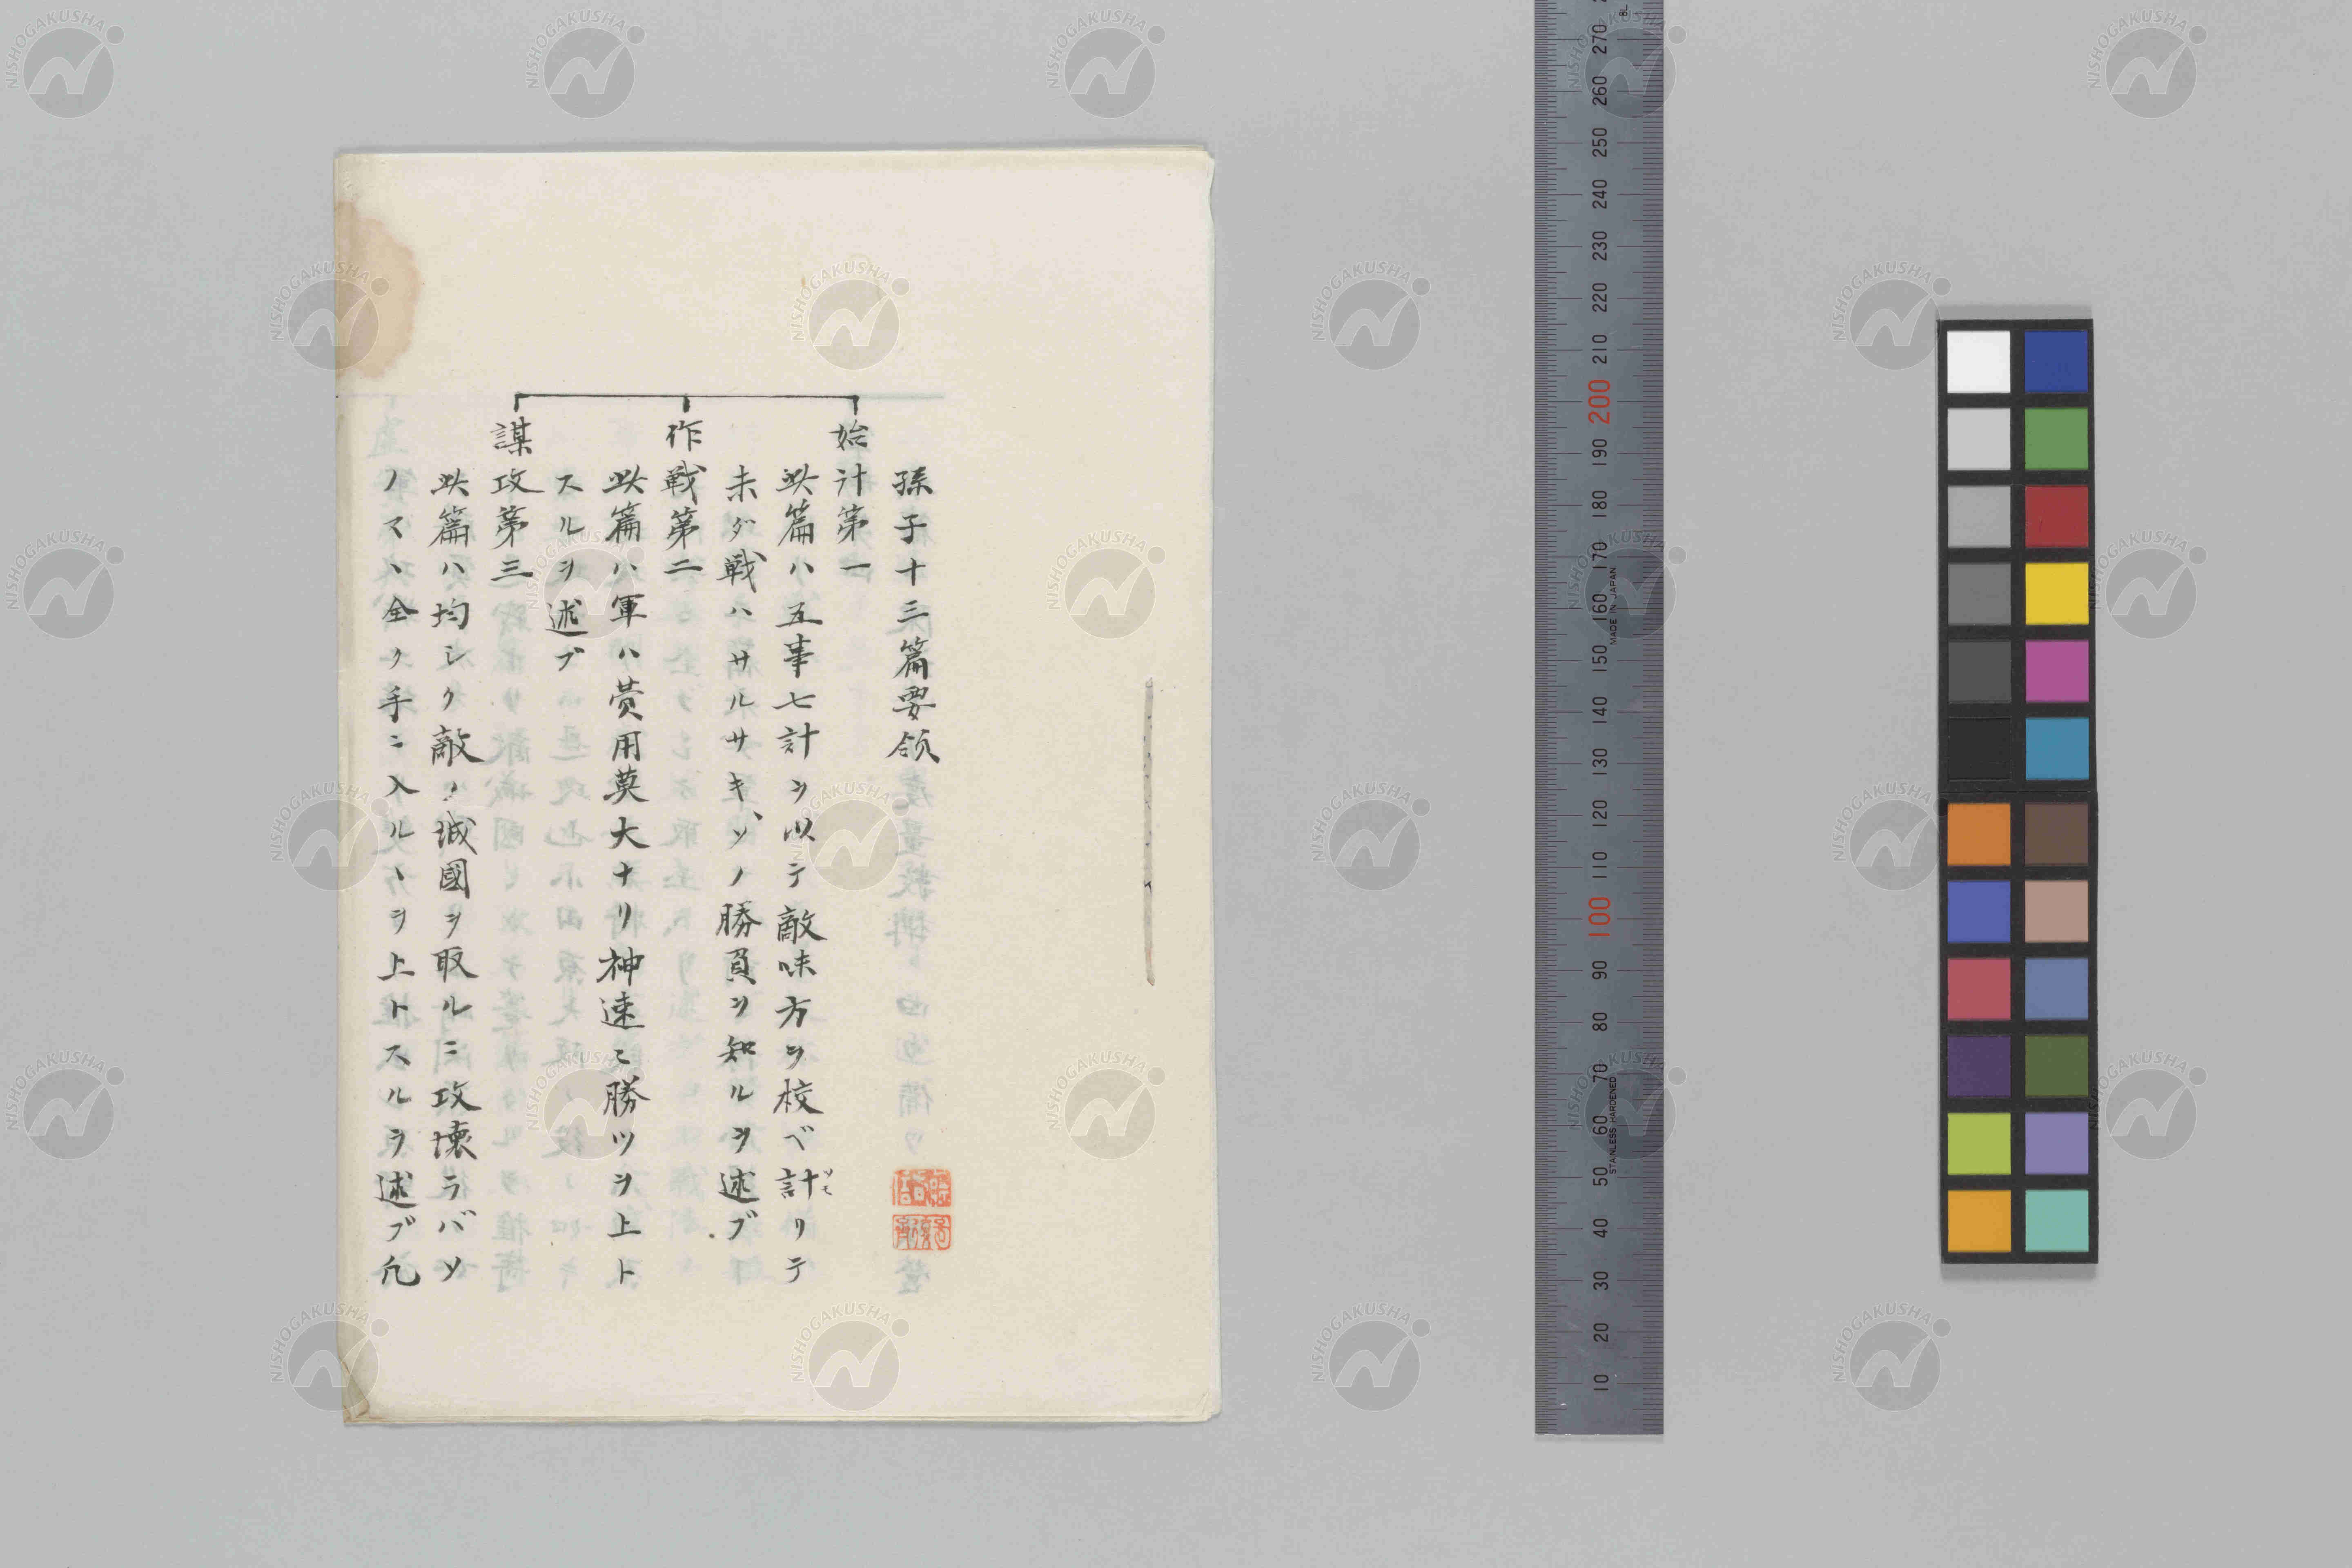 孫子十三篇要領
始計第一
此篇ハ五事七計ヲ以テ敵味方ヲ校ベ計リテ
未ダ戦ハサルサキ、ソノ勝負ヲ知ルヲ述ブ
作戦第二
此篇ハ軍ハ費用莫大ナリ神速ニ勝ツヲ上ト
スルヲ述ブ
謀攻第三
此篇ハ均シク敵ノ城國ヲ取ルニ攻壊ラバソ
ノマヽ全ク手ニ入ルヽヲ上トスルヲ述ブ凡
270
260
250
240
230
220
210
200
190
180
170
160
150
140
130
120
110
100
90
80
70
60
50
40
30
20
10
MADE IN JAPAN
STAINLESS HARDENED
NISHOGAKUSHA